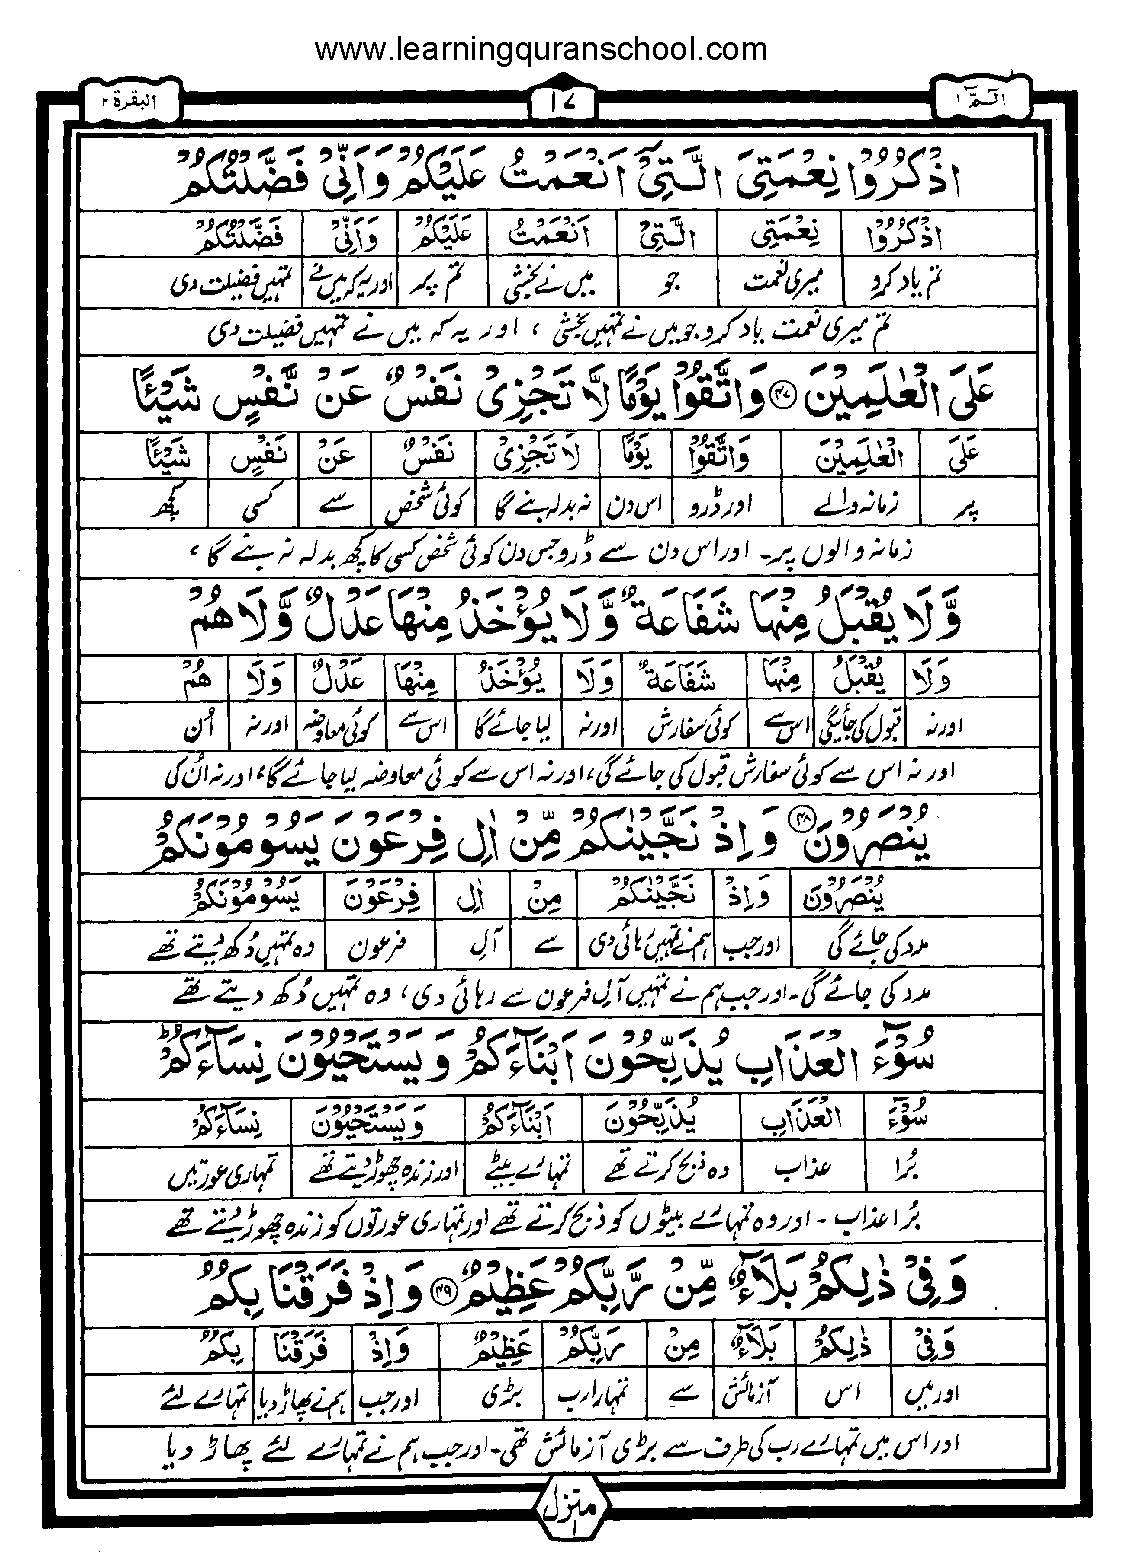 www.learningquranschool.com
الٓمّٓ ١ ١٧ البقرة ٢
اذْكُرُوْا نِعْمَتِیَ الَّتِیْۤ اَنْعَمْتُ عَلَیْكُمْ وَاَنِّیْ فَضَّلْتُكُمْ
اذْكُرُوْا نِعْمَتِی الَّتِیْ اَنْعَمْتُ عَلَیْكُمْ وَاَنِّیْ فَضَّلْتُكُمْ
تم یاد کرو میری نعمت جو میں نے بخشی تم پر اور یہ کہ میں نے تمہیں فضیلت دی
تم میری نعمت یاد کرو جو میں نے تمہیں بخشی ، اور یہ کہ میں نے تمہیں فضیلت دی
عَلَی الْعٰلَمِیْنَ ۴۷ وَاتَّقُوْا یَوْمًا لَّا تَجْزِیْ نَفْسٌ عَنْ نَّفْسٍ شَیْـًٔا
عَلَی الْعٰلَمِیْنَ وَاتَّقُوْا یَوْمًا لَا تَجْزِیْ نَفْسٌ عَنْ نَفْسٍ شَیْـًٔا
پر زمانہ والے اور ڈرو اس دن نہ بدلہ بنے گا کوئی شخص سے کسی کچھ
زمانہ والوں پر۔ اور اس دن سے ڈرو جس دن کوئی شخص کسی کا کچھ بدلہ نہ بنے گا ،
وَّلَا یُقْبَلُ مِنْهَا شَفَاعَةٌ وَّلَا یُؤْخَذُ مِنْهَا عَدْلٌ وَّلَا هُمْ
وَلَا یُقْبَلُ مِنْهَا شَفَاعَةٌ وَلَا یُؤْخَذُ مِنْهَا عَدْلٌ وَلَا هُمْ
اور نہ قبول کی جائیگی اس سے کوئی سفارش اور نہ لیا جائے گا اس سے کوئی معاوضہ اور نہ اُن
اور نہ اس سے کوئی سفارش قبول کی جائے گی، اور نہ اس سے کوئی معاوضہ لیا جائے گا، اور نہ اُن کی
یُنْصَرُوْنَ ۴۸ وَاِذْ نَجَّیْنٰكُمْ مِّنْ اٰلِ فِرْعَوْنَ یَسُوْمُوْنَكُمْ
یُنْصَرُوْنَ وَاِذْ نَجَّیْنٰكُمْ مِنْ اٰلِ فِرْعَوْنَ یَسُوْمُوْنَكُمْ
مدد کی جائے گی اور جب ہم نے تمہیں رہائی دی سے آلِ فرعون وہ تمہیں دُکھ دیتے تھے
مدد کی جائے گی۔ اور جب ہم نے تمہیں آلِ فرعون سے رہائی دی، وہ تمہیں دُکھ دیتے تھے
سُوْٓءَ الْعَذَابِ یُذَبِّحُوْنَ اَبْنَآءَكُمْ وَیَسْتَحْیُوْنَ نِسَآءَكُمْ ؕ
سُوْٓءَ الْعَذَابِ یُذَبِّحُوْنَ اَبْنَآءَكُمْ وَیَسْتَحْیُوْنَ نِسَآءَكُمْ
بُرا عذاب وہ ذبح کرتے تھے تمہارے بیٹے اور زندہ چھوڑ دیتے تھے تمہاری عورتیں
بُرا عذاب ۔ اور وہ تمہارے بیٹوں کو ذبح کرتے تھے اور تمہاری عورتوں کو زندہ چھوڑ دیتے تھے
وَفِیْ ذٰلِكُمْ بَلَآءٌ مِّنْ رَّبِّكُمْ عَظِیْمٌ ۴۹ وَاِذْ فَرَقْنَا بِكُمُ
وَفِیْ ذٰلِكُمْ بَلَآءٌ مِنْ رَبِّكُمْ عَظِیْمٌ وَاِذْ فَرَقْنَا بِكُمُ
اور میں اس آزمائش سے تمہارا رب بڑی اور جب ہم نے پھاڑ دیا تمہارے لئے
اور اس میں تمہارے رب کی طرف سے بڑی آزمائش تھی۔ اور جب ہم نے تمہارے لئے پھاڑ دیا
منزل ١